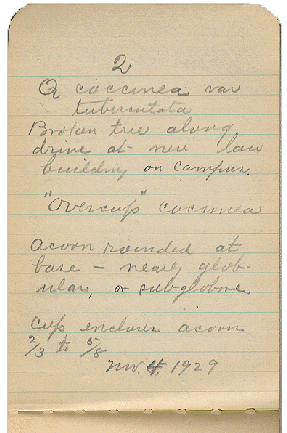 2
Q coccinea var
tuberculata
Broken tree along
drive at new law
building on campus.
"Overcup" cocinea
Acorn rounded at
base - nearly glob-
ular, or subglobose.
Cup encloses acorn
2/3 to 5/8
Nov. 4, 1929